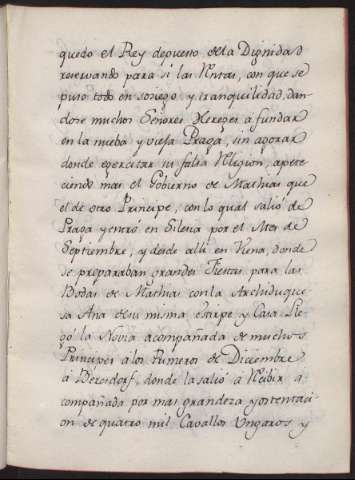 quedo el Rey depuesto de la Dignidad
reservando para si las Rentas, con que se
puso todo en sosiego y tranquilidad, dan
dose muchos Señores Hereges a fundar
en la nueba y vieja Praga, sin
donde egercitar su falsa Religion, apete
ciendo mas el Gobierno de Mathias que
el de otro Principe, con lo qual salió de
Praga y entró en Silesia por el Mes de
Septiembre, y desde alli en Viena, donde
se preparaban grandes Fiestas para las
Bodas de Mathias con la Archiduque
sa Ana de su misma Estirpe y Casa Lle
gó la Novia acompañada de muchos
Principes a los Primeros de Diciembre
á donde la salió á Recibir a
compañada por mas grandeza y ostentaci
on de quatro mil Cavallos Ungaros y